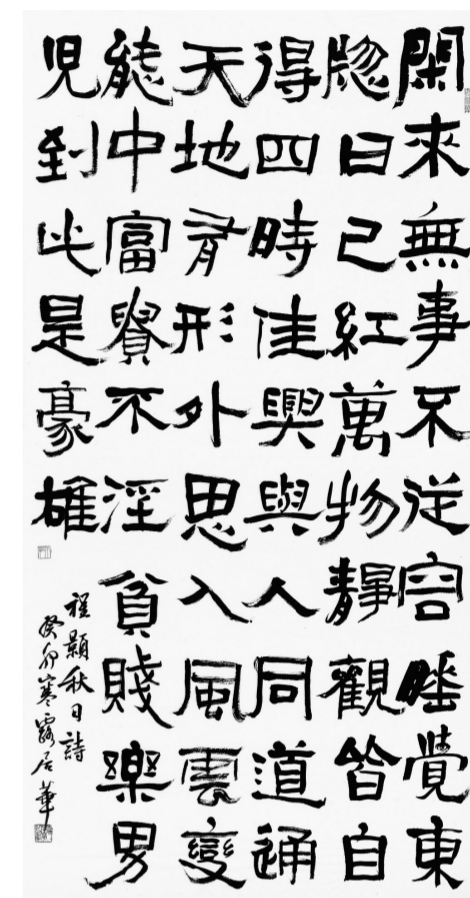 閑來無事不從容睡覺東
牎日已紅萬物靜觀皆自
得四時佳興與人同道通
天地有形外思入風雲變
態中富貴不淫貧賤樂男
兒到此是豪雄
程顥秋日詩
癸卯寒露居華